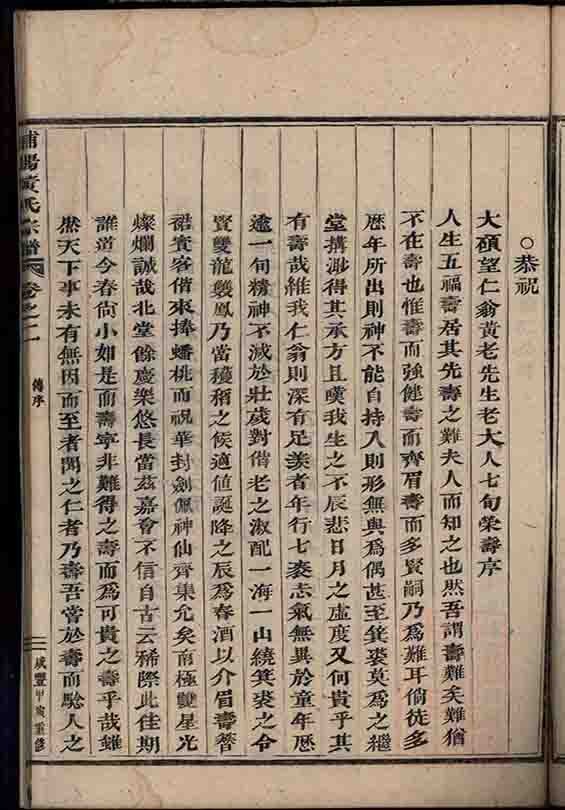 ○恭祝
大碩望仁翁黃老先生老大人七旬榮壽序
人生五福壽居其先壽之難夫人而知之也然吾謂壽難矣難猶
不在壽也惟壽而強健壽而齊眉壽而多賢嗣乃為難耳倘徒多
歷年所出則神不能自持入則形無與為偶甚至箕裘莫為之繼
堂搆渺得其承方且嘆我生之不辰悲日月之虛度又何貴乎其
有壽哉維我仁翁則深有足羨者年行七袠志氣無異於童年歷
逾一旬精神不減於壯歲對偕老之淑配一海一山繞箕裘之令
賢雙龍雙鳳乃當穫稻之候適值誕降之辰為春酒以介眉壽簪
裾賓客偕來捧蟠桃而祝華封劍佩神仙齊集允矣南極雙星光
燦爛誠哉北堂餘慶樂悠長當茲嘉會不信自古云稀際此佳期
誰道今春尙小如是而壽寕非難得之壽而為可貴之壽乎哉雖
然天下事未有無因而至者聞之仁者乃壽吾嘗於壽而騐人之
浦陽黃氏宗譜
卷之二
傳序
咸豐甲寅重修